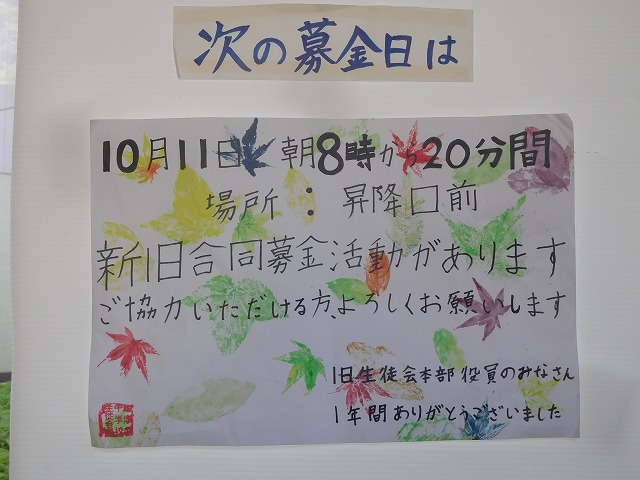 次の募金日は
10月11日 朝8時から20分間
場所：昇降口前
新旧合同募金活動があります
ご協力いただける方、よろしくお願いします
旧生徒会本部役員のみなさん
1年間ありがとうございました